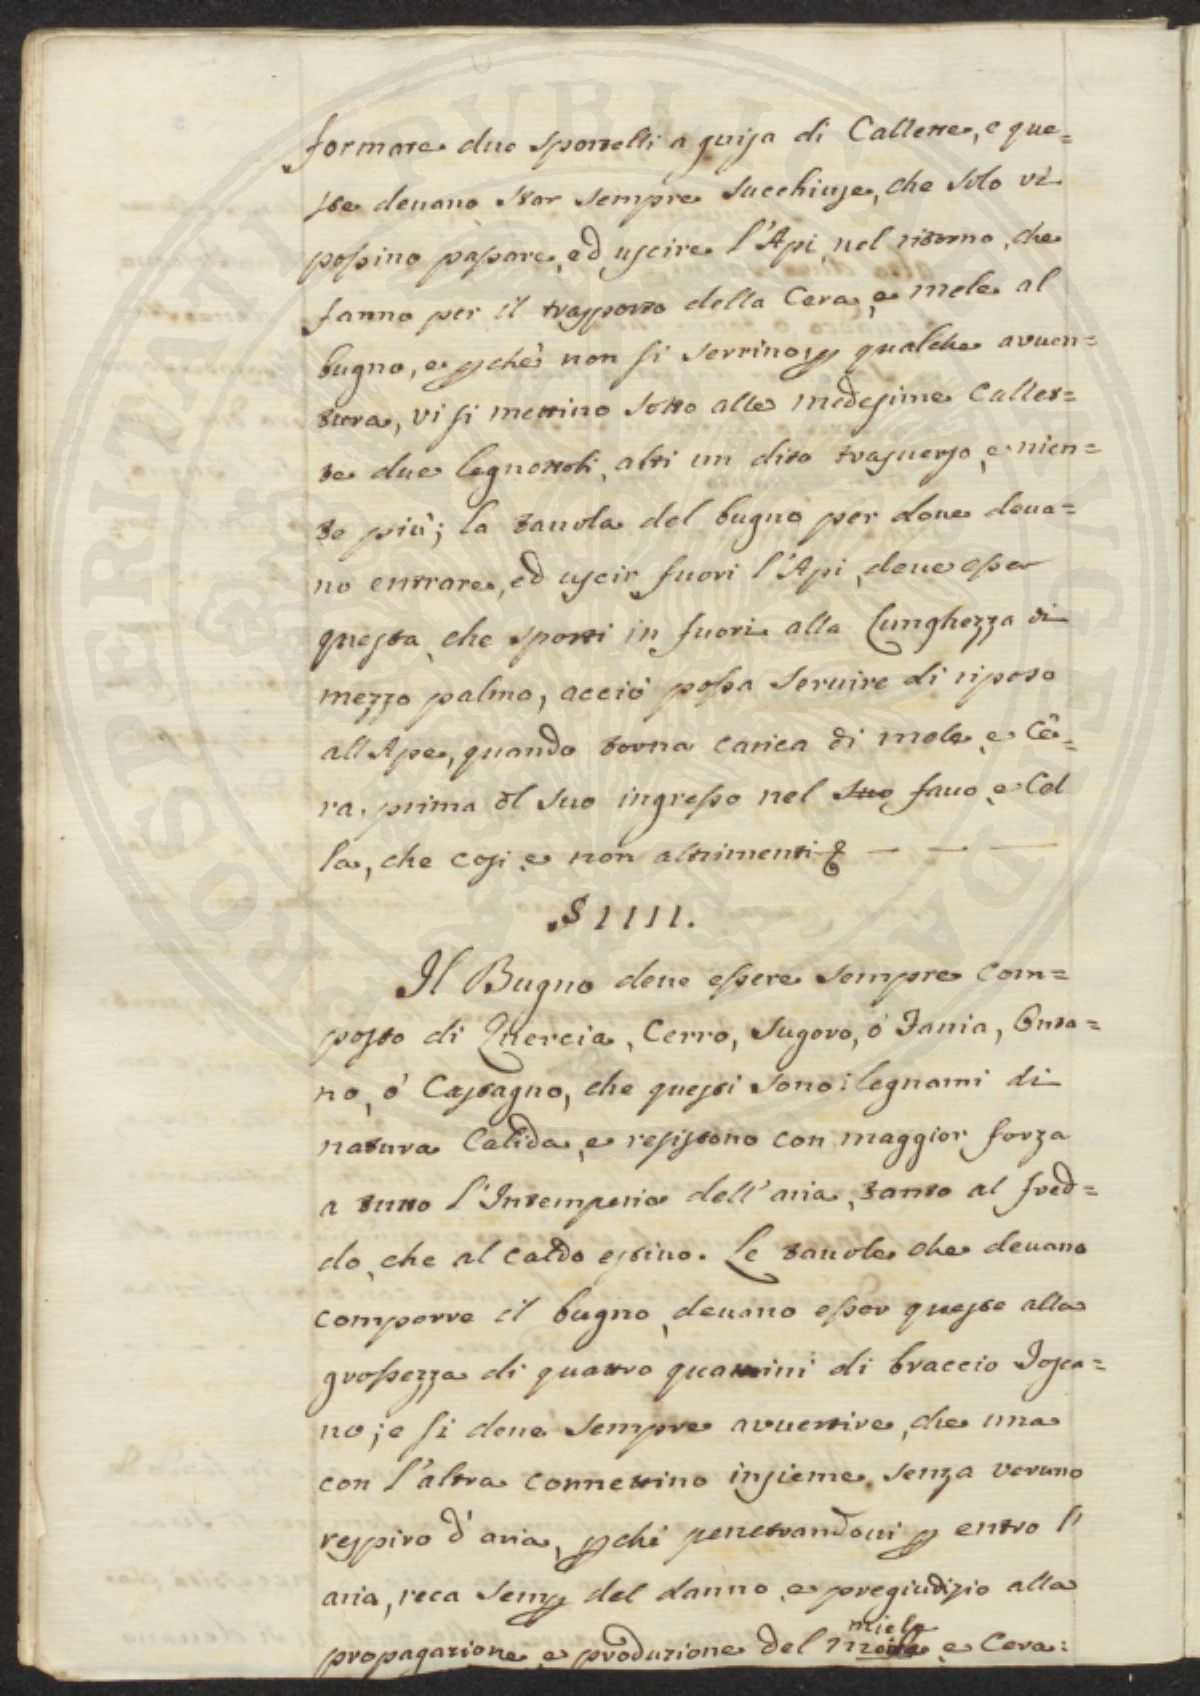 formare due sportelli a guisa di Callette, e que=
ste devano star sempre succhiuse, che solo vi
possino passare, ed uscire l'Api, nel ritorno, che
fanno per il trasporto della Cera, e mele al
bugno, e pchè non si serrino p qualche avven=
tura, vi si mettino sotto alle medesime Callet=
te due legnottoli, alti un dito trasverso, e nien=
te più; la tavola del bugno per dove deva=
no entrare, ed uscir fuori l'Api, deve esser
questa, che sporti in fuori alla lunghezza di
mezzo palmo, acciò possa servire di riposo
all'Ape, quando torna carica di mele, e Ce=
ra, prima dl suo ingresso nel suo favo, e Cel
la, che cosi, e non altrimenti
§ IIII.
Il Bugno deve essere sempre com=
posto di Quercia, Cerro, Sugovo, ò Fania, Onta=
no, ò Castagno, che questi sono i legnami di
natura Calida, e resistono con maggior forza
a tutto l'Intemperie dell'aria, tanto al fred=
do, che al caldo estivo. Le tavole che devano
comporre il bugno, devano esser queste alla
grossezza di quattro quattrini di braccio Tosca=
no; e si deve sempre avvertire, che una
con l'altra connettino insieme, senza veruno
respiro d'aria, pchè penetrandovi p entro l'
aria, reca semp del danno, e pregiudizio alla
propagazione, e produzione del miele, e Cera: